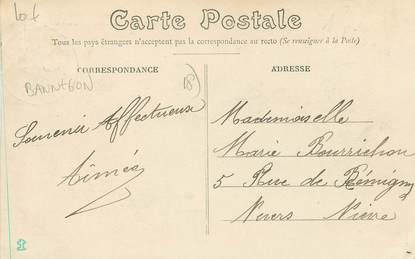 Lot
Carte Postale
Tous les pays étrangers n'acceptent pas la correspondance au recto (Se renseigner à la Poste)
CORRESPONDANCE
BANNEGON
18)
Souvenir Affectueux
Aimée
ADRESSE
Mademoiselle
Marie Bourrichon
5 Rue de Rémigny
Nevers Nièvre